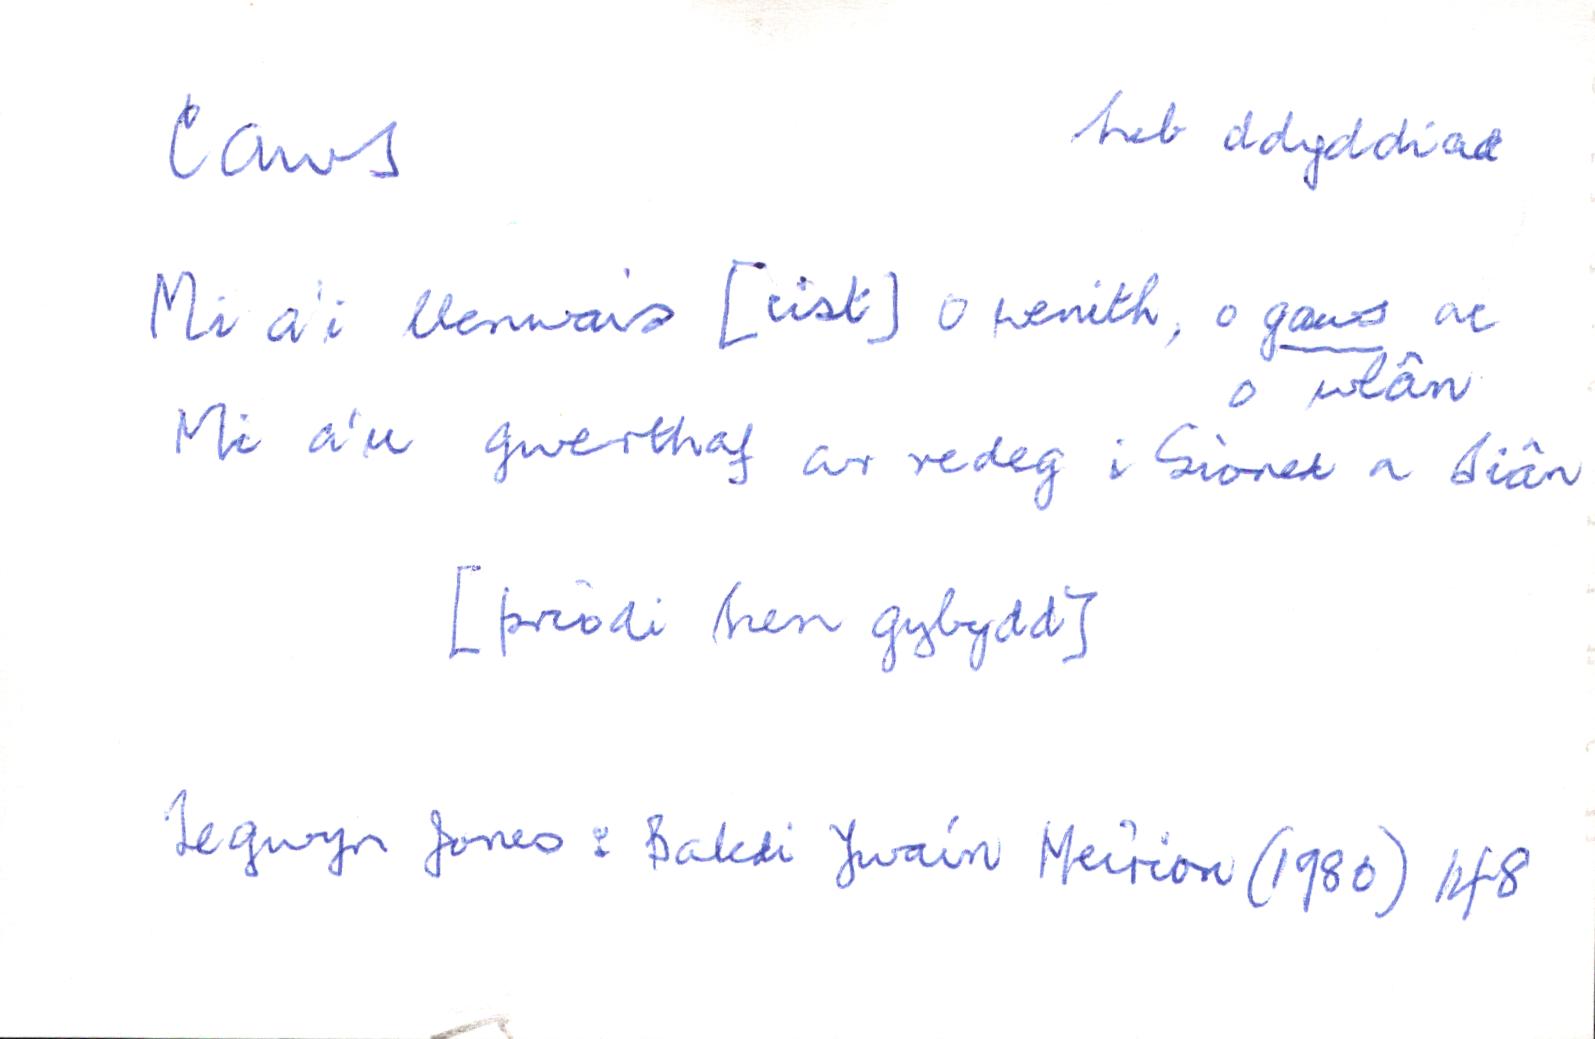 Caws heb ddyddiad
Mi a'i llenwais [cist] o wenith, o gaws ac
o wlân
Mi a'u gwerthaf ar redeg i Sionet a Siân
[priodi hen gybydd]
Tegwyn Jones: Baledi Ywain Meirion (1980) 148